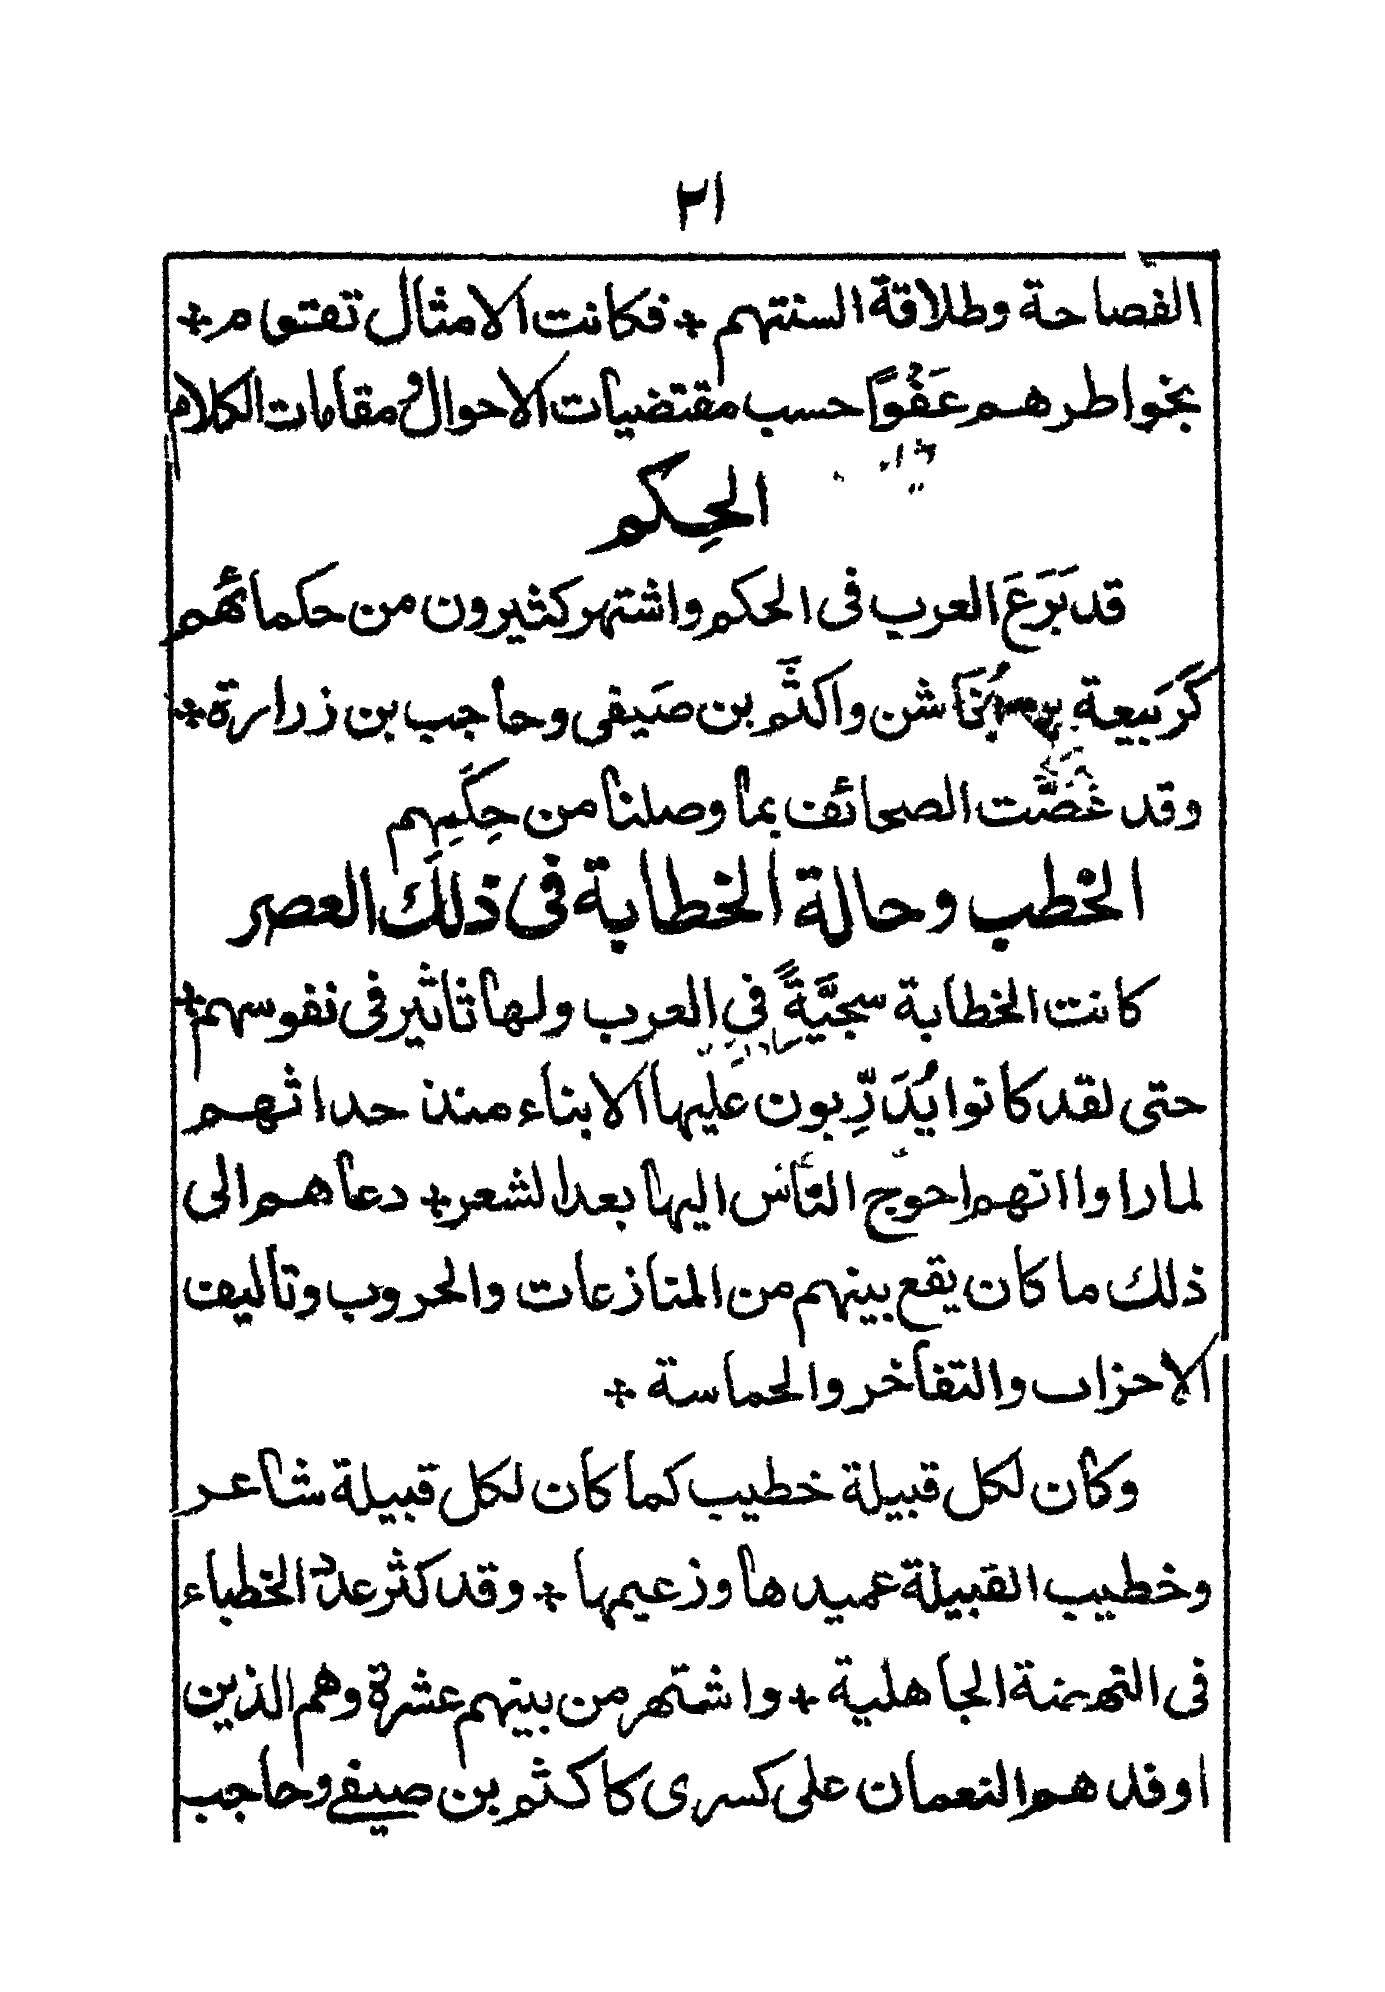 ٢١
الفصاحة وطلاقة السنتهم + فكانت الامثال تقتوم +
بخواطرهم عَفْوًا حسب مقتضيات الاحوال ومقامات الكلام
الحِكم
قد بَرَعَ العرب فى الحكم واشتهر كثيرون من حكمائهم
كَرَبيعة بن مُخَاشن واكثَم بن صَيفى وحاجب بن زرارة +
وقد غَصَّت الصحائف بما وصلنا من حِكَمِهم
الخطب وحالة الخطابة فى ذلك العصر
كانت الخطابة سجيَّةً في العرب ولها تاثير فى نفوسهم +
حتى لقد كانوا يُدَرِّبون عليها الابناء منذ حداثهم
لما راوا انهم احوج الناس اليها بعد الشعر + دعاهم الى
ذلك ما كان يقع بينهم من المنازعات والحروب وتاليف
الاحزاب والتفاخر والحماسة +
وكان لكل قبيلة خطيب كما كان لكل قبيلة شاعر
وخطيب القبيلة عميدها وزعيمها + وقد كثر عدد الخطباء
فى النهضة الجاهلية + واشتهر من بينهم عشرة وهم الذين
اوفدهم النعمان على كسرى كاكثم بن صيفى وحاجب